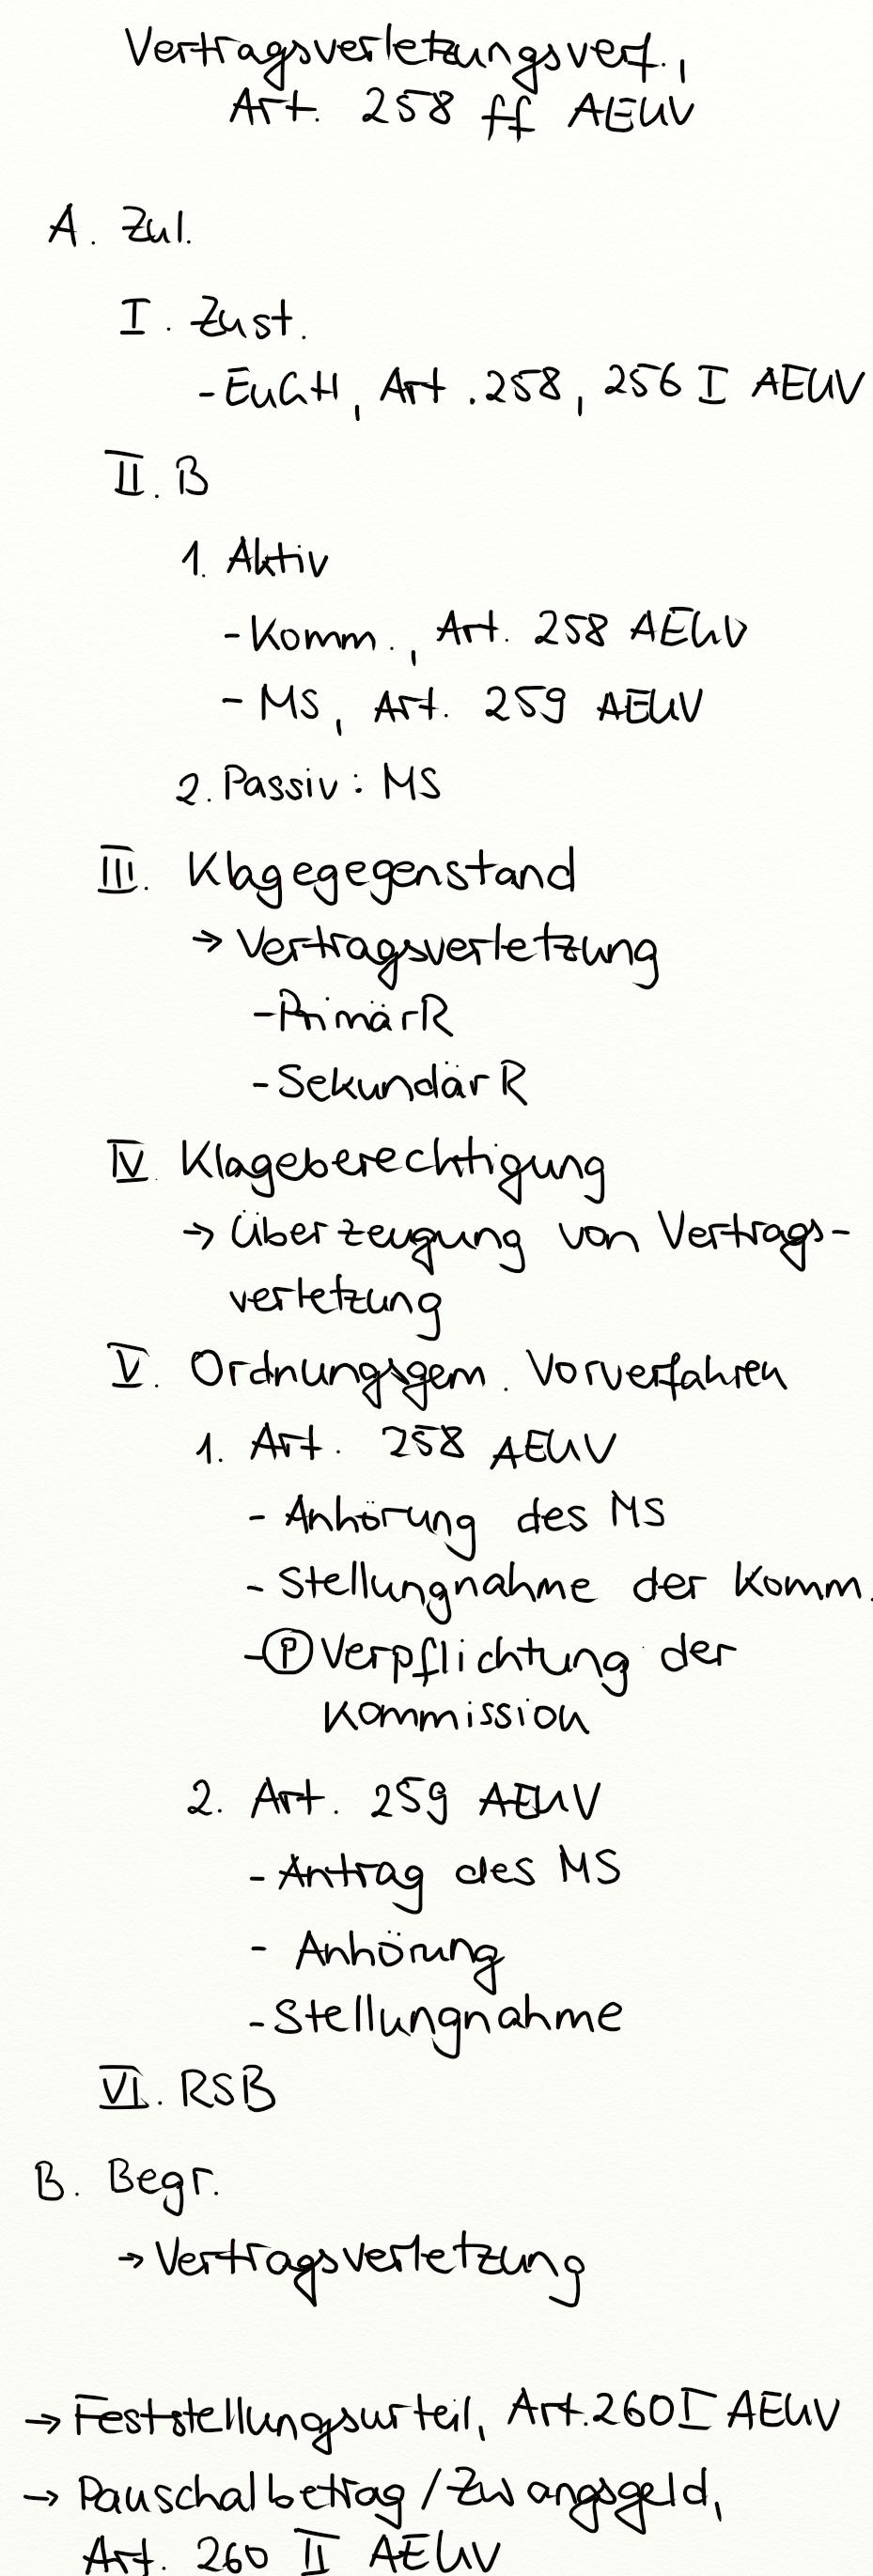 Vertragsverletzungsverf.,
Art. 258 ff AEUV
A. Zul.
I. Zust.
- EuGH, Art. 258, 256 I AEUV
II. B
1. Aktiv
- Komm., Art. 258 AEUV
- MS, Art. 259 AEUV
2. Passiv: MS
III. Klagegegenstand
→ Vertragsverletzung
- PrimärR
- SekundärR
IV. Klageberechtigung
→ Überzeugung von Vertrags-
verletzung
V. Ordnungsgem. Vorverfahren
1. Art. 258 AEUV
- Anhörung des MS
- Stellungnahme der Komm.
- Ⓟ Verpflichtung der
Kommission
2. Art. 259 AEUV
- Antrag des MS
- Anhörung
- Stellungnahme
VI. RSB
B. Begr.
→ Vertragsverletzung
→ Feststellungsurteil, Art. 260 I AEUV
→ Pauschalbetrag/Zwangsgeld,
Art. 260 II AEUV